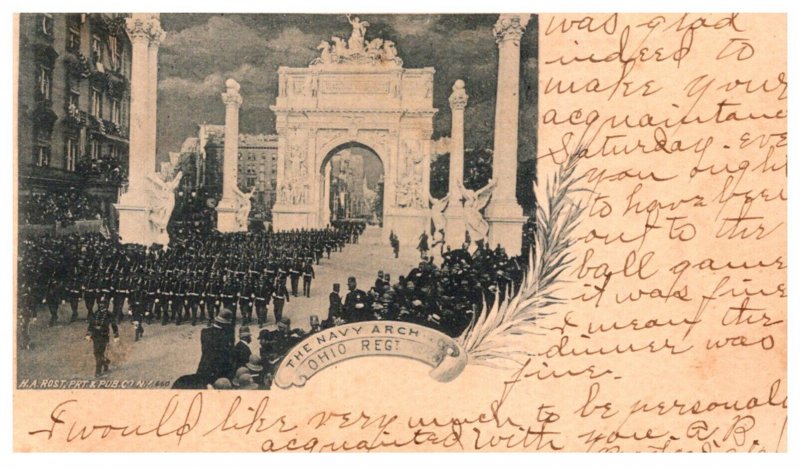 was glad
indeed to
make your
acquaintance
Saturday. eve
you ought
to have been
out to the
ball game
it was fine
I mean the
dinner was
fine.
THE NAVY ARCH
OHIO REGT
H.A. ROST, PRT. & PUB. CO. N.Y.
I would like very much to be personaly
acquainted with you. A B